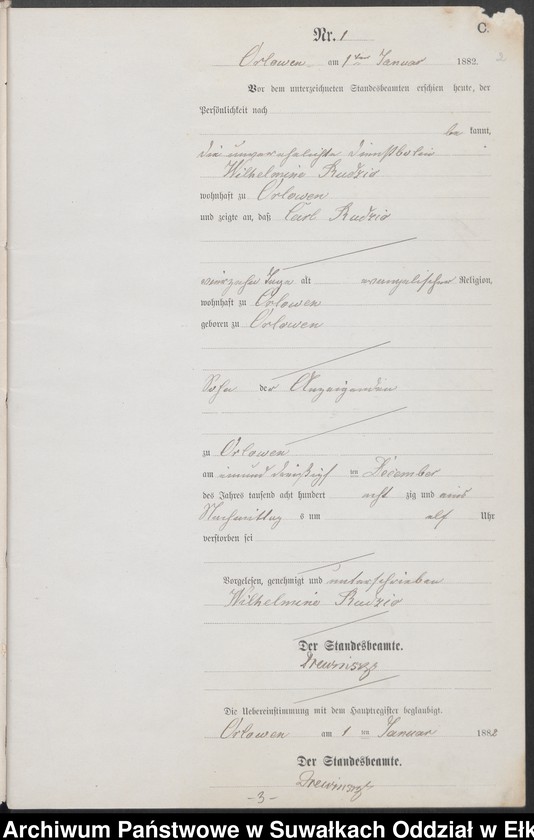 Nr. 1
C.
2
Orlowen am 1ten Januar 1882.
Vor dem unterzeichneten Standesbeamten erschien heute, der
Persönlichkeit nach
be kannt,
die unverehelichte Dienstbotin
Wilhelmine Rudzio
wohnhaft zu Orlowen
und zeigte an, daß Carl Rudzio
vierzehn Tage alt evangelischer Religion,
wohnhaft zu Orlowen
geboren zu Orlowen
Sohn der Anzeigenden
zu Orlowen
am einund dreißigst ten December
des Jahres tausend acht hundert acht zig und eins
Nachmittag s um elf Uhr
verstorben sei
Vorgelesen, genehmigt und unterschrieben
Wilhelmine Rudzio
Der Standesbeamte.
Die Uebereinstimmung mit dem Hauptregister beglaubigt.
Orlowen am 1 ten Januar 1882
Der Standesbeamte.
-3-
Archiwum Państwowe w Suwałkach Oddział w Ełk